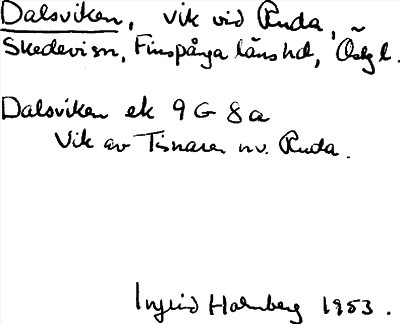 Dalsviken, vik vid Ruda,
Skedevi sn, Finspånga läns hd, Östgl.
Dalsviken ek 9G 8a
Vik av Tisnaren nv. Ruda.
Ingrid Holmberg 1953.